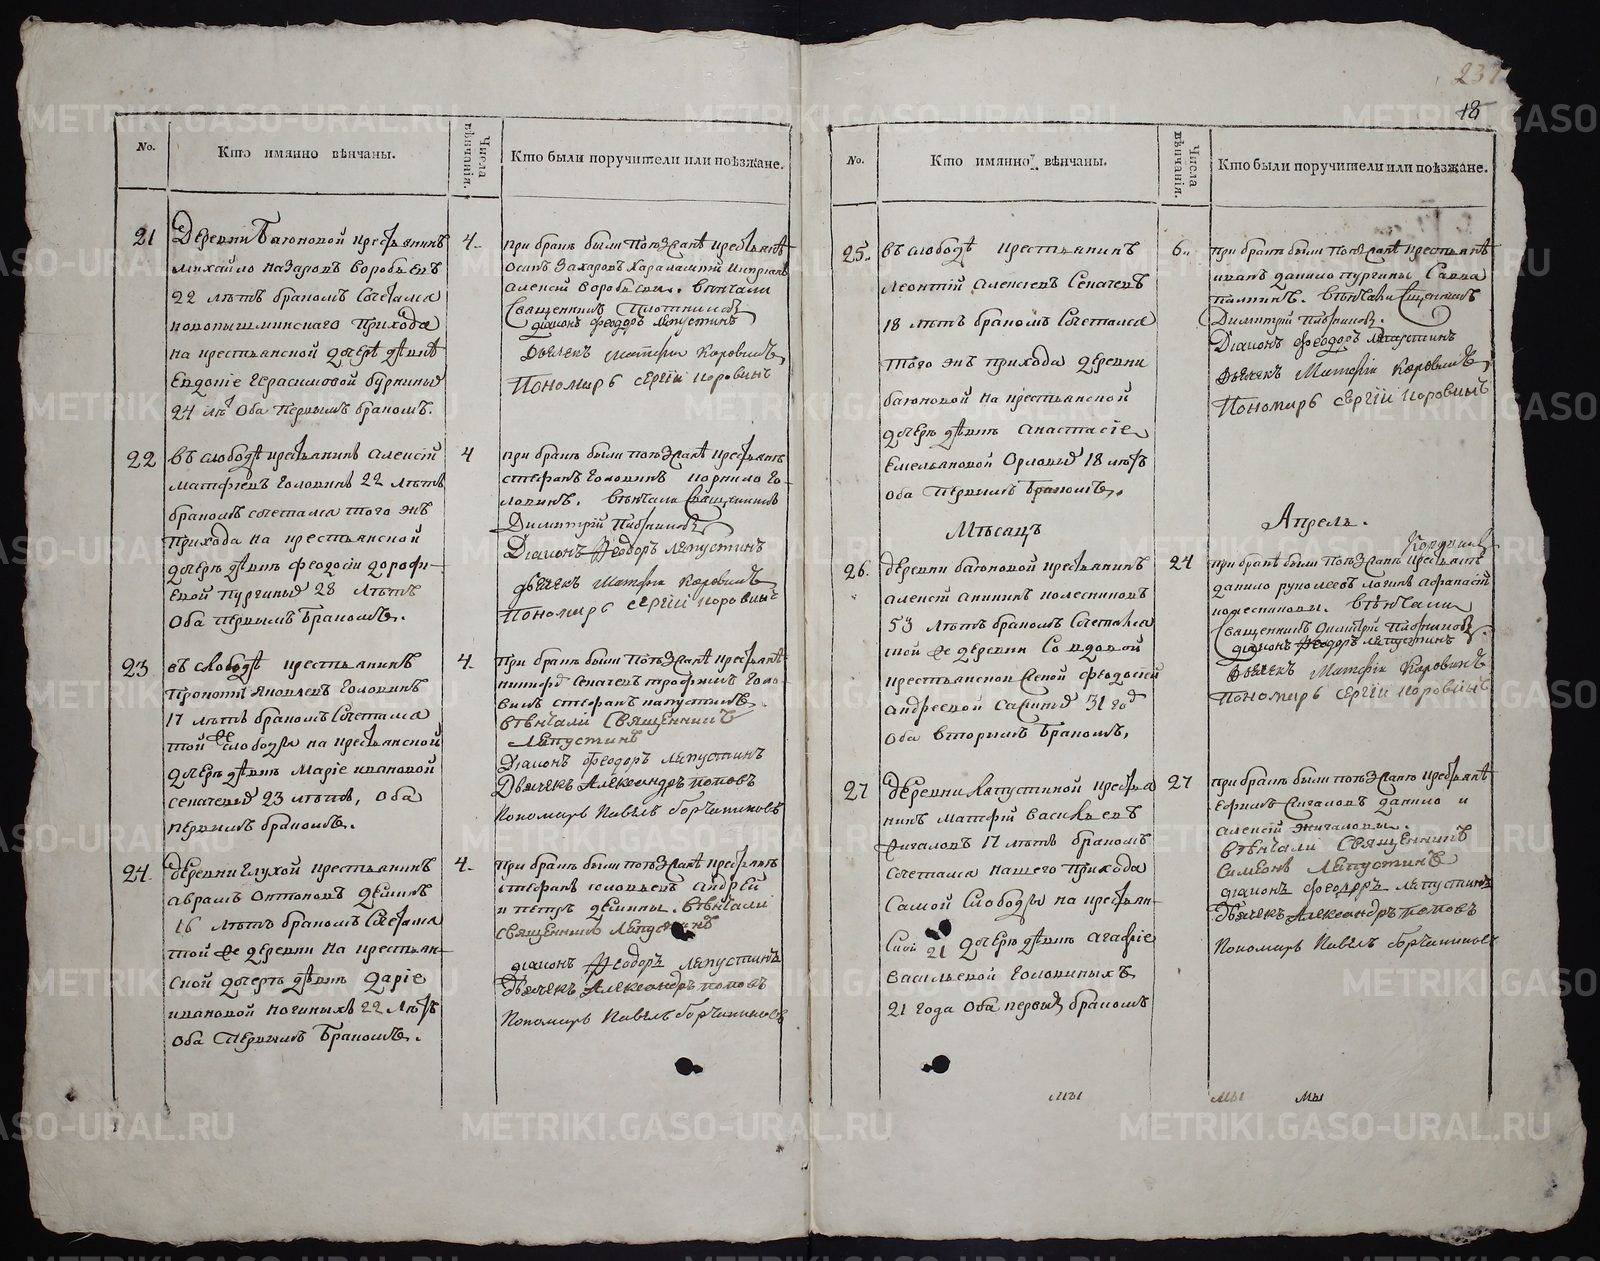 231
18
No.
Кто имянно вѣнчаны.
Числа вѣнчанія.
Кто были поручители или поѣзжане.
21
Деревни Багоновой крестьянинъ
Михайло Назаровъ Воробьевъ
22 лѣтъ бракомъ сочетался
новопышминскаго прихода
на крестьянской дочерѣ дѣвкѣ
Евдокіе Герасимовой
24 лѣ оба первымъ бракомъ.
4
при бракѣ были поѣзжанѣ крестьянѣ
Осипъ Захаровъ
Алексѣй Воробьевы. вѣнчали
Священникъ Плотниковъ
діаконъ Феодоръ Ляпустинъ
Дьячекъ Матфей Коровинъ
Пономарь Сергій Коровинъ
22
въ слободѣ крестьянинъ Алексѣй
Матфѣевъ Головинъ 22 лѣтъ
бракомъ сочетался того жъ
прихода на крестьянской
дочерѣ дѣвкѣ Феодосіи Дорофѣ-
евой Пургиныхъ 28 лѣтъ
оба первымъ бракомъ.
4
при бракѣ были поѣзжанѣ крестьянѣ
Стефанъ Головинъ Корнило Го-
ловинъ. вѣнчали Священникъ
Димитрій Плотниковъ
Діаконъ Феодоръ Ляпустинъ
Дьячекъ Матфей Коровинъ
Пономарь Сергій Коровинъ
23
въ слободѣ крестьянинъ
Прокопій Яковлевъ Головинъ
17 лѣтъ бракомъ сочетался
той же слободы на крестьянской
дочерѣ дѣвкѣ Маріе Ивановой
Сепачевыхъ 23 лѣтъ, оба
первымъ бракомъ.
4.
При бракѣ были поѣзжанѣ крестьянѣ
Сепачевъ Трофимъ Голо-
винъ Стефанъ Капустинъ.
вѣнчали Священникъ
Ляпустинъ
Діаконъ Феодоръ Ляпустинъ
Дьячекъ Александръ Поповъ
Пономарь Павелъ Горчаниковъ
24
Деревни Глухой крестьянинъ
Аврамъ Деминъ
16 лѣтъ бракомъ сочетался
той же деревни на крестьян-
ской дочерѣ дѣвкѣ Даріе
Ивановой 22 лѣтъ
оба первымъ бракомъ.
4
при бракѣ были поѣзжанѣ крестьянѣ
Стефанъ Соловьевъ Андрей
и Петръ Демины. вѣнчали
Священникъ Ляпустинъ
діаконъ Феодоръ Ляпустинъ
Дьячекъ Александръ Поповъ
Пономарь Павелъ Горчаниковъ
No.
Кто имянно вѣнчаны.
Числа вѣнчанія.
Кто были поручители или поѣзжане.
25
въ слободѣ крестьянинъ
Леонтій Алексѣевъ Сепачевъ
18 лѣтъ бракомъ сочетался
того жъ прихода деревни
багоновой на крестьянской
дочерѣ дѣвкѣ Анастасіе
Емельяновой Орловыхъ 18 лѣтъ
оба первымъ бракомъ.
6
при бракѣ были поѣзжанѣ крестьянѣ
Иванъ Данило Пургины Савва
вѣнчали Священникъ
Димитрій Плотниковъ.
Діаконъ Феодоръ Ляпустинъ
Дьячекъ Матфей Коровинъ
Пономарь Сергій Коровинъ
Мѣсяцъ
Апрель.
26
деревни багоновой крестьянинъ
Алексѣй Аникинъ Колесниковъ
53 лѣтъ бракомъ сочетался
той же деревни со вдовой
крестьянской женой Феодосіей
Андреевой 31 год
оба вторымъ бракомъ,
24
при бракѣ были поѣзжанѣ крестьянѣ
Данило Логинъ Афанасій
Колесниковы. вѣнчали
Священникъ Димитрій Плотниковъ
діаконъ Феодоръ Ляпустинъ
Дьячекъ Матфей Коровинъ
Пономарь Сергій Коровинъ
27
деревни Капустиной крестья
нинъ Матфей Васильевъ
Жигаловъ 17 лѣтъ бракомъ
сочетался нашего прихода
самой слободы на крестьян-
21 дочерѣ дѣвкѣ Агафіе
Васильевой Головиныхъ
21 года оба первымъ бракомъ
27
при бракѣ были поѣзжанѣ крестьянѣ
Ефимъ Жигаловъ Данило и
Алексѣй Жигаловы.
вѣнчали Священникъ
Симеонъ Ляпустинъ
діаконъ Феодоръ Ляпустинъ
Дьячекъ Александръ Поповъ
Пономарь Павелъ Горчаниковъ
мы
мы
мы
METRIKI.GASO-URAL.RU